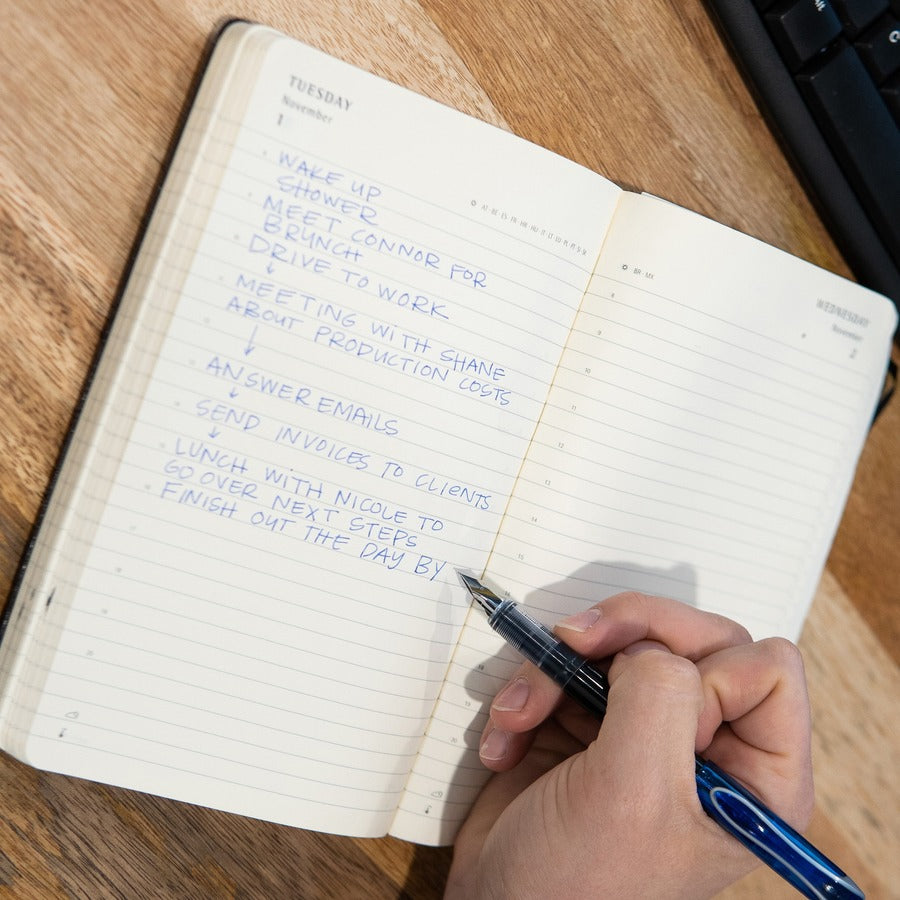 TUESDAY
November
1
WAKE UP
SHOWER
MEET CONNOR FOR
BRUNCH
DRIVE TO WORK
↓
MEETING WITH SHANE
ABOUT PRODUCTION COSTS
↓
ANSWER EMAILS
↓
SEND INVOICES TO CLIENTS
↓
LUNCH WITH NICOLE TO
GO OVER NEXT STEPS
FINISH OUT THE DAY BY
WEDNESDAY
November
2
BR - MX
8
9
10
11
12
13
14
15
19
20